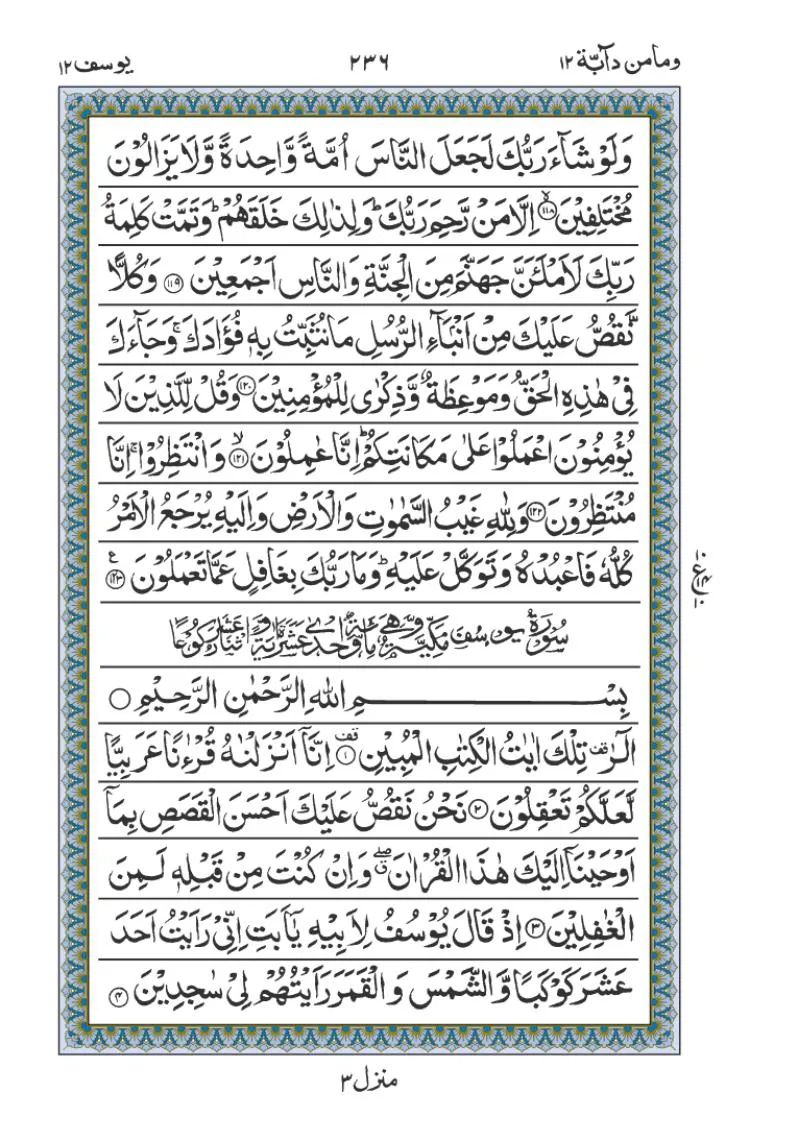 ومامن دآبّة ١٢
٢٣٦
یوسف ١٢
وَلَوْ شَآءَ رَبُّكَ لَجَعَلَ النَّاسَ اُمَّةً وَّاحِدَةً وَّلَا یَزَالُوْنَ
مُخْتَلِفِیْنَ ۙ﴿١١٨﴾ اِلَّا مَنْ رَّحِمَ رَبُّكَ ؕ وَلِذٰلِكَ خَلَقَهُمْ ؕ وَتَمَّتْ كَلِمَةُ
رَبِّكَ لَاَمْلَـَٔنَّ جَهَنَّمَ مِنَ الْجِنَّةِ وَالنَّاسِ اَجْمَعِیْنَ ﴿١١٩﴾ وَكُلًّا
نَّقُصُّ عَلَیْكَ مِنْ اَنْۢبَآءِ الرُّسُلِ مَا نُثَبِّتُ بِهٖ فُؤَادَكَ ۚ وَجَآءَكَ
فِیْ هٰذِهِ الْحَقُّ وَمَوْعِظَةٌ وَّذِكْرٰی لِلْمُؤْمِنِیْنَ ﴿١٢٠﴾ وَقُلْ لِّلَّذِیْنَ لَا
یُؤْمِنُوْنَ اعْمَلُوْا عَلٰی مَكَانَتِكُمْ ؕ اِنَّا عٰمِلُوْنَ ۙ﴿١٢١﴾ وَانْتَظِرُوْا ۚ اِنَّا
مُنْتَظِرُوْنَ ﴿١٢٢﴾ وَلِلّٰهِ غَیْبُ السَّمٰوٰتِ وَالْاَرْضِ وَاِلَیْهِ یُرْجَعُ الْاَمْرُ
كُلُّهٗ فَاعْبُدْهُ وَتَوَكَّلْ عَلَیْهِ ؕ وَمَا رَبُّكَ بِغَافِلٍ عَمَّا تَعْمَلُوْنَ ﴿١٢٣﴾ ع
سُوْرَةُ یُوْسُفَ مَكِّیَّةٌ وَّهِیَ مِائَةٌ وَّاِحْدٰی عَشَرَةَ اٰیَةً وَّاثْنَا عَشَرَ رُكُوْعًا
بِسْــــــــــــمِ اللهِ الرَّحْمٰنِ الرَّحِیْمِ ○
الٓرٰ ۫ تِلْكَ اٰیٰتُ الْكِتٰبِ الْمُبِیْنِ ۟﴿١﴾ اِنَّاۤ اَنْزَلْنٰهُ قُرْءٰنًا عَرَبِیًّا
لَّعَلَّكُمْ تَعْقِلُوْنَ ﴿٢﴾ نَحْنُ نَقُصُّ عَلَیْكَ اَحْسَنَ الْقَصَصِ بِمَاۤ
اَوْحَیْنَاۤ اِلَیْكَ هٰذَا الْقُرْاٰنَ ۖ وَاِنْ كُنْتَ مِنْ قَبْلِهٖ لَمِنَ
الْغٰفِلِیْنَ ﴿٣﴾ اِذْ قَالَ یُوْسُفُ لِاَبِیْهِ یٰۤاَبَتِ اِنِّیْ رَاَیْتُ اَحَدَ
عَشَرَ كَوْكَبًا وَّالشَّمْسَ وَالْقَمَرَ رَاَیْتُهُمْ لِیْ سٰجِدِیْنَ ﴿٤﴾
منزل ٣